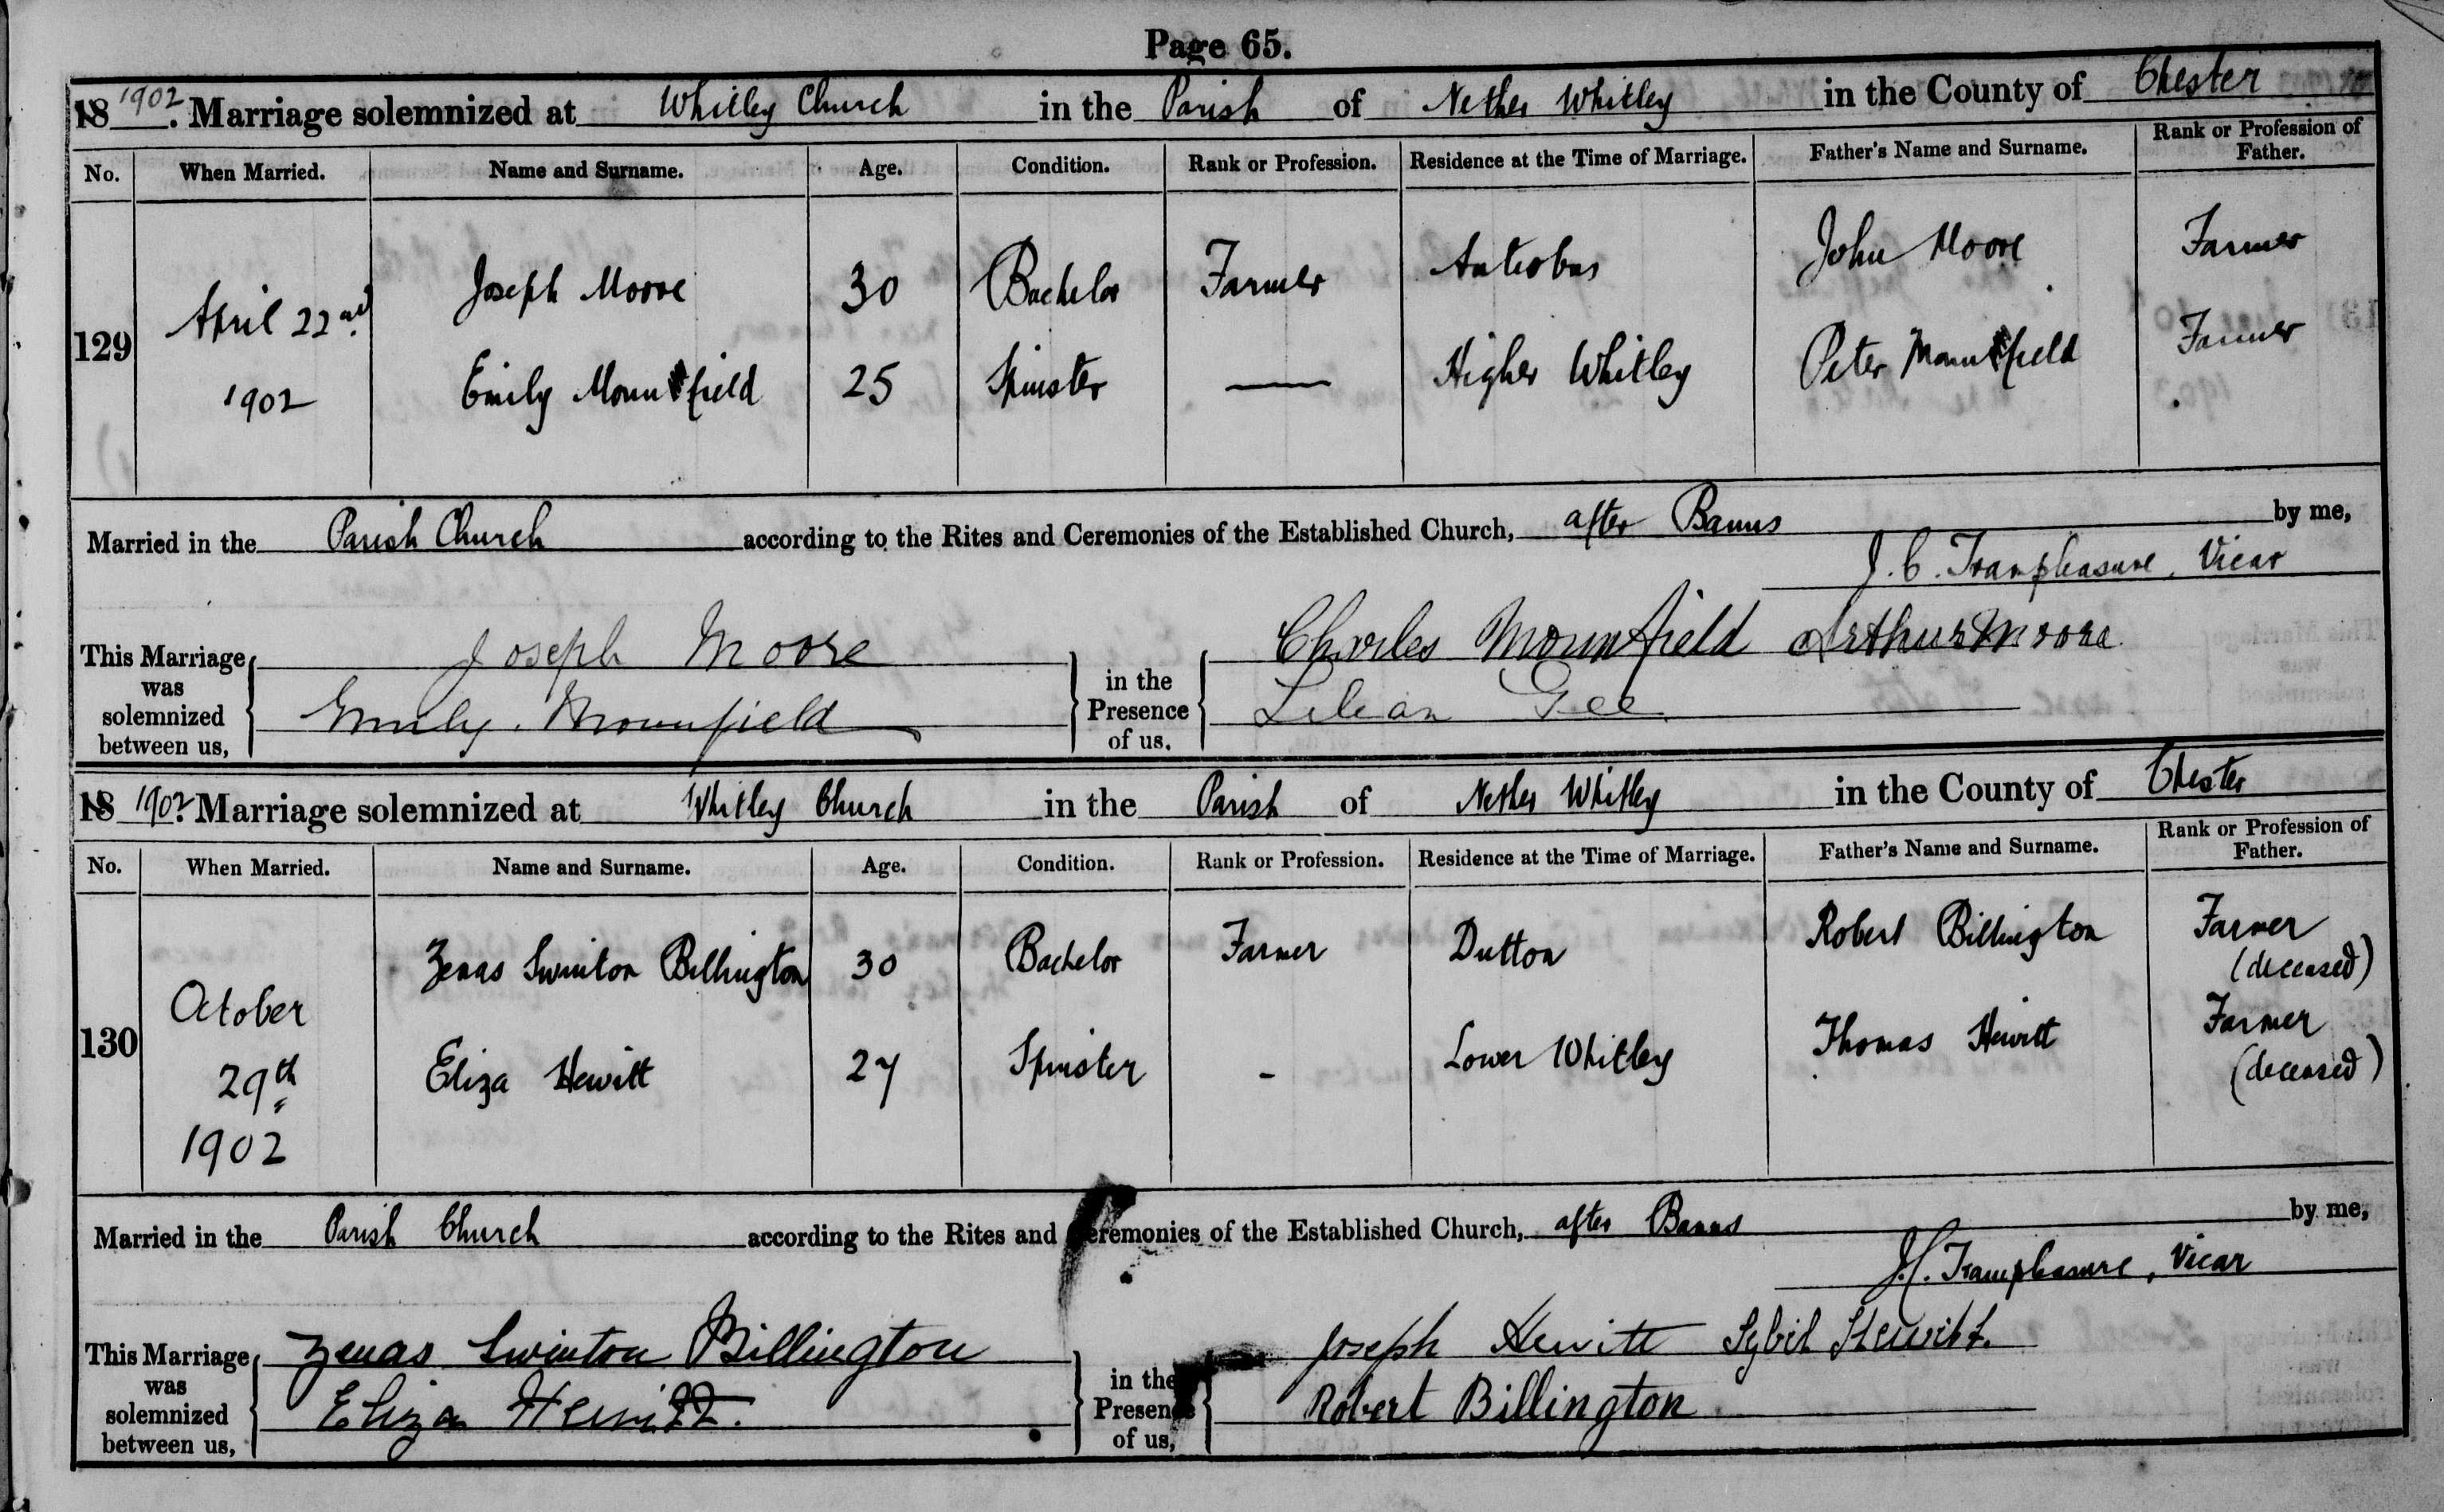 Page 65.
18 1902. Marriage solemnized at Whitley Church in the Parish of Nether Whitley in the County of Chester
No. When Married. Name and Surname. Age. Condition. Rank or Profession. Residence at the Time of Marriage. Father's Name and Surname. Rank or Profession of Father.
129 April 22nd 1902 Joseph Moore 30 Bachelor Farmer Antrobus John Moore Farmer
Emily Mounfield 25 Spinster — Higher Whitley Peter Mounfield Farmer
Married in the Parish Church according to the Rites and Ceremonies of the Established Church, after Banns by me,
J. C. Trampleasure, Vicar
This Marriage was solemnized between us, Joseph Moore in the Presence of us. Charles Mounfield Arthur Moore
Emily Mounfield Lilian Gee
18 1902. Marriage solemnized at Whitley Church in the Parish of Nether Whitley in the County of Chester
No. When Married. Name and Surname. Age. Condition. Rank or Profession. Residence at the Time of Marriage. Father's Name and Surname. Rank or Profession of Father.
130 October 29th 1902 Zenas Swinton Billington 30 Bachelor Farmer Dutton Robert Billington Farmer (deceased)
Eliza Hewitt 27 Spinster - Lower Whitley Thomas Hewitt Farmer (deceased)
Married in the Parish Church according to the Rites and Ceremonies of the Established Church, after Banns by me,
J.C. Trampleasure, Vicar
This Marriage was solemnized between us, Zenas Swinton Billington in the Presence of us, Joseph Hewitt Sybil Hewitt.
Eliza Hewitt. Robert Billington